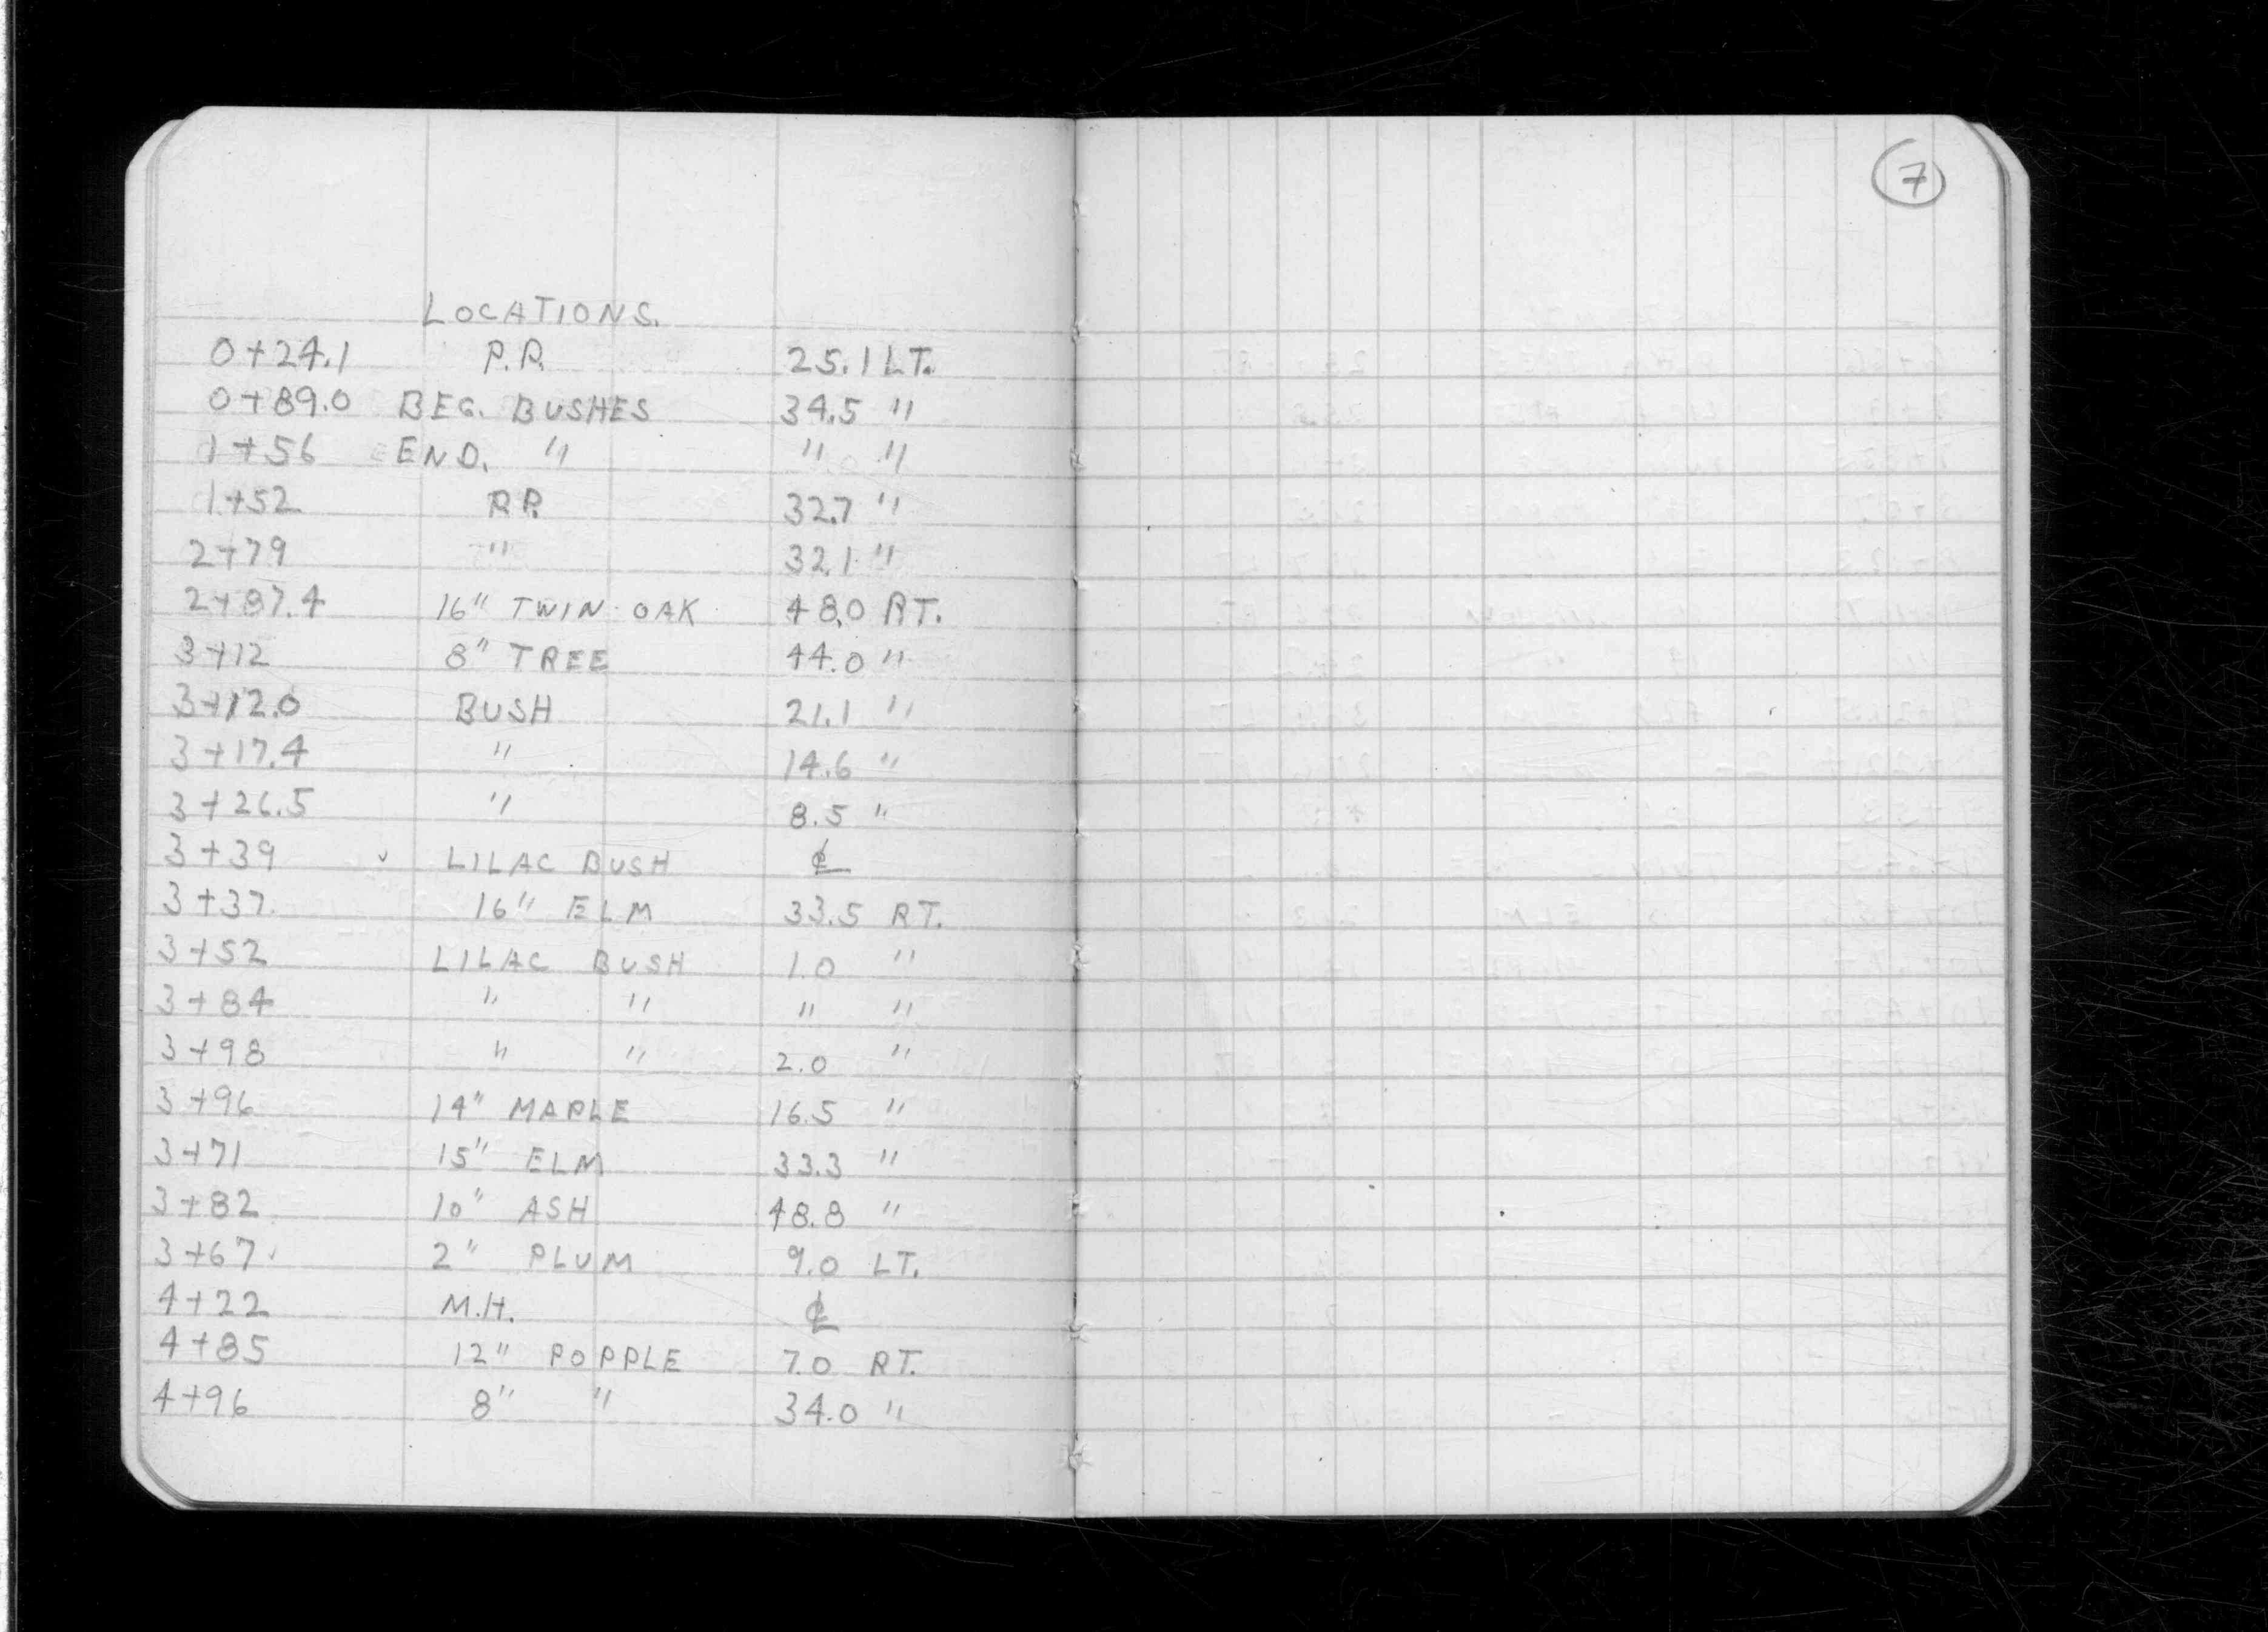 7
LOCATIONS.
0+24.1 P.P. 25.1 LT.
0+89.0 BEG. BUSHES 34.5 "
1+56 END. " " "
1+52 P.P. 32.7 "
2+79 " 32.1 "
2+87.4 16" TWIN OAK 48.0 RT.
3+12 8" TREE 44.0 "
3+12.0 BUSH 21.1 "
3+17.4 " 14.6 "
3+26.5 " 8.5 "
3+39 LILAC BUSH ℄
3+37 16" ELM 33.5 RT.
3+52 LILAC BUSH 1.0 "
3+84 " " " "
3+98 " " 2.0 "
3+96 14" MAPLE 16.5 "
3+71 15" ELM 33.3 "
3+82 10" ASH 48.8 "
3+67 2" PLUM 9.0 LT.
4+22 M.H. ℄
4+85 12" POPPLE 7.0 RT.
4+96 8" " 34.0 "